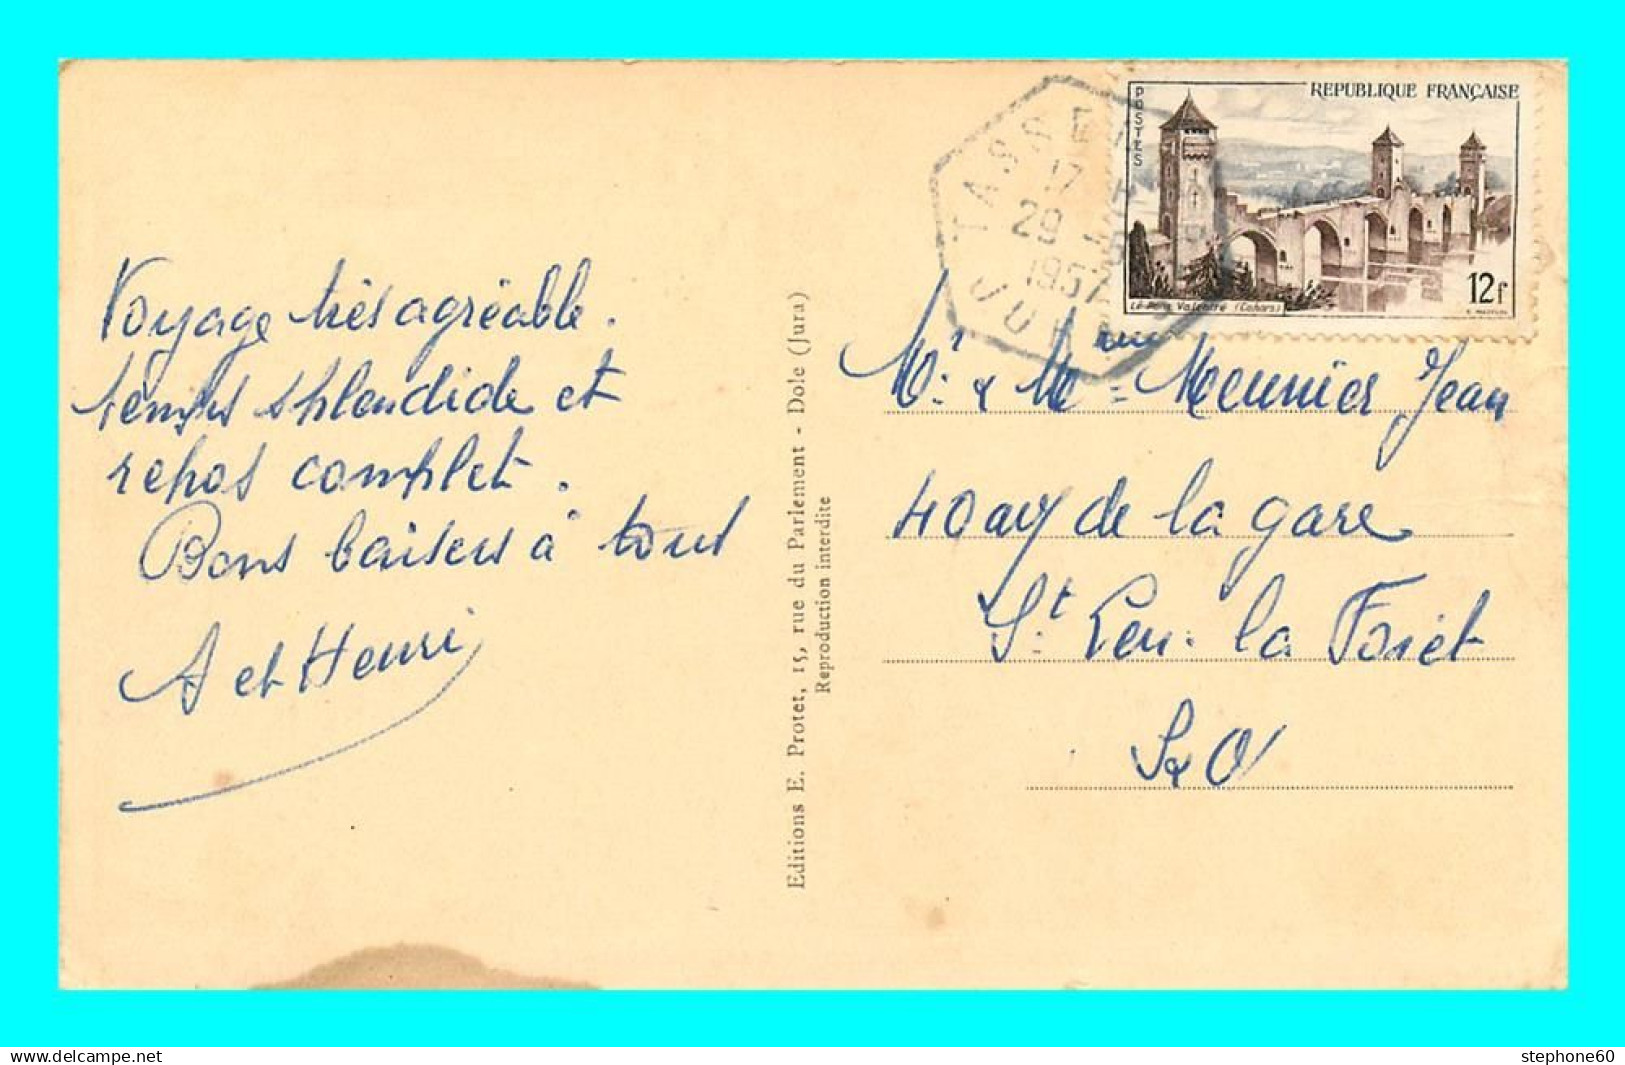 Voyage très agréable.
temps splendide et
repos complet.
Bons baisers à tous
A et Henri
Editions E. Protet, 15, rue du Parlement - Dole (Jura)
Reproduction interdite
TASSE
17 H
29
1957
JURA
REPUBLIQUE FRANÇAISE
POSTES
12f
Le Pont Valentré (Cahors)
Mr. & Mme Meunier Jean
40 av de la gare
St Leu. la Forêt
S & O
Tous les timbres du monde
stephone60